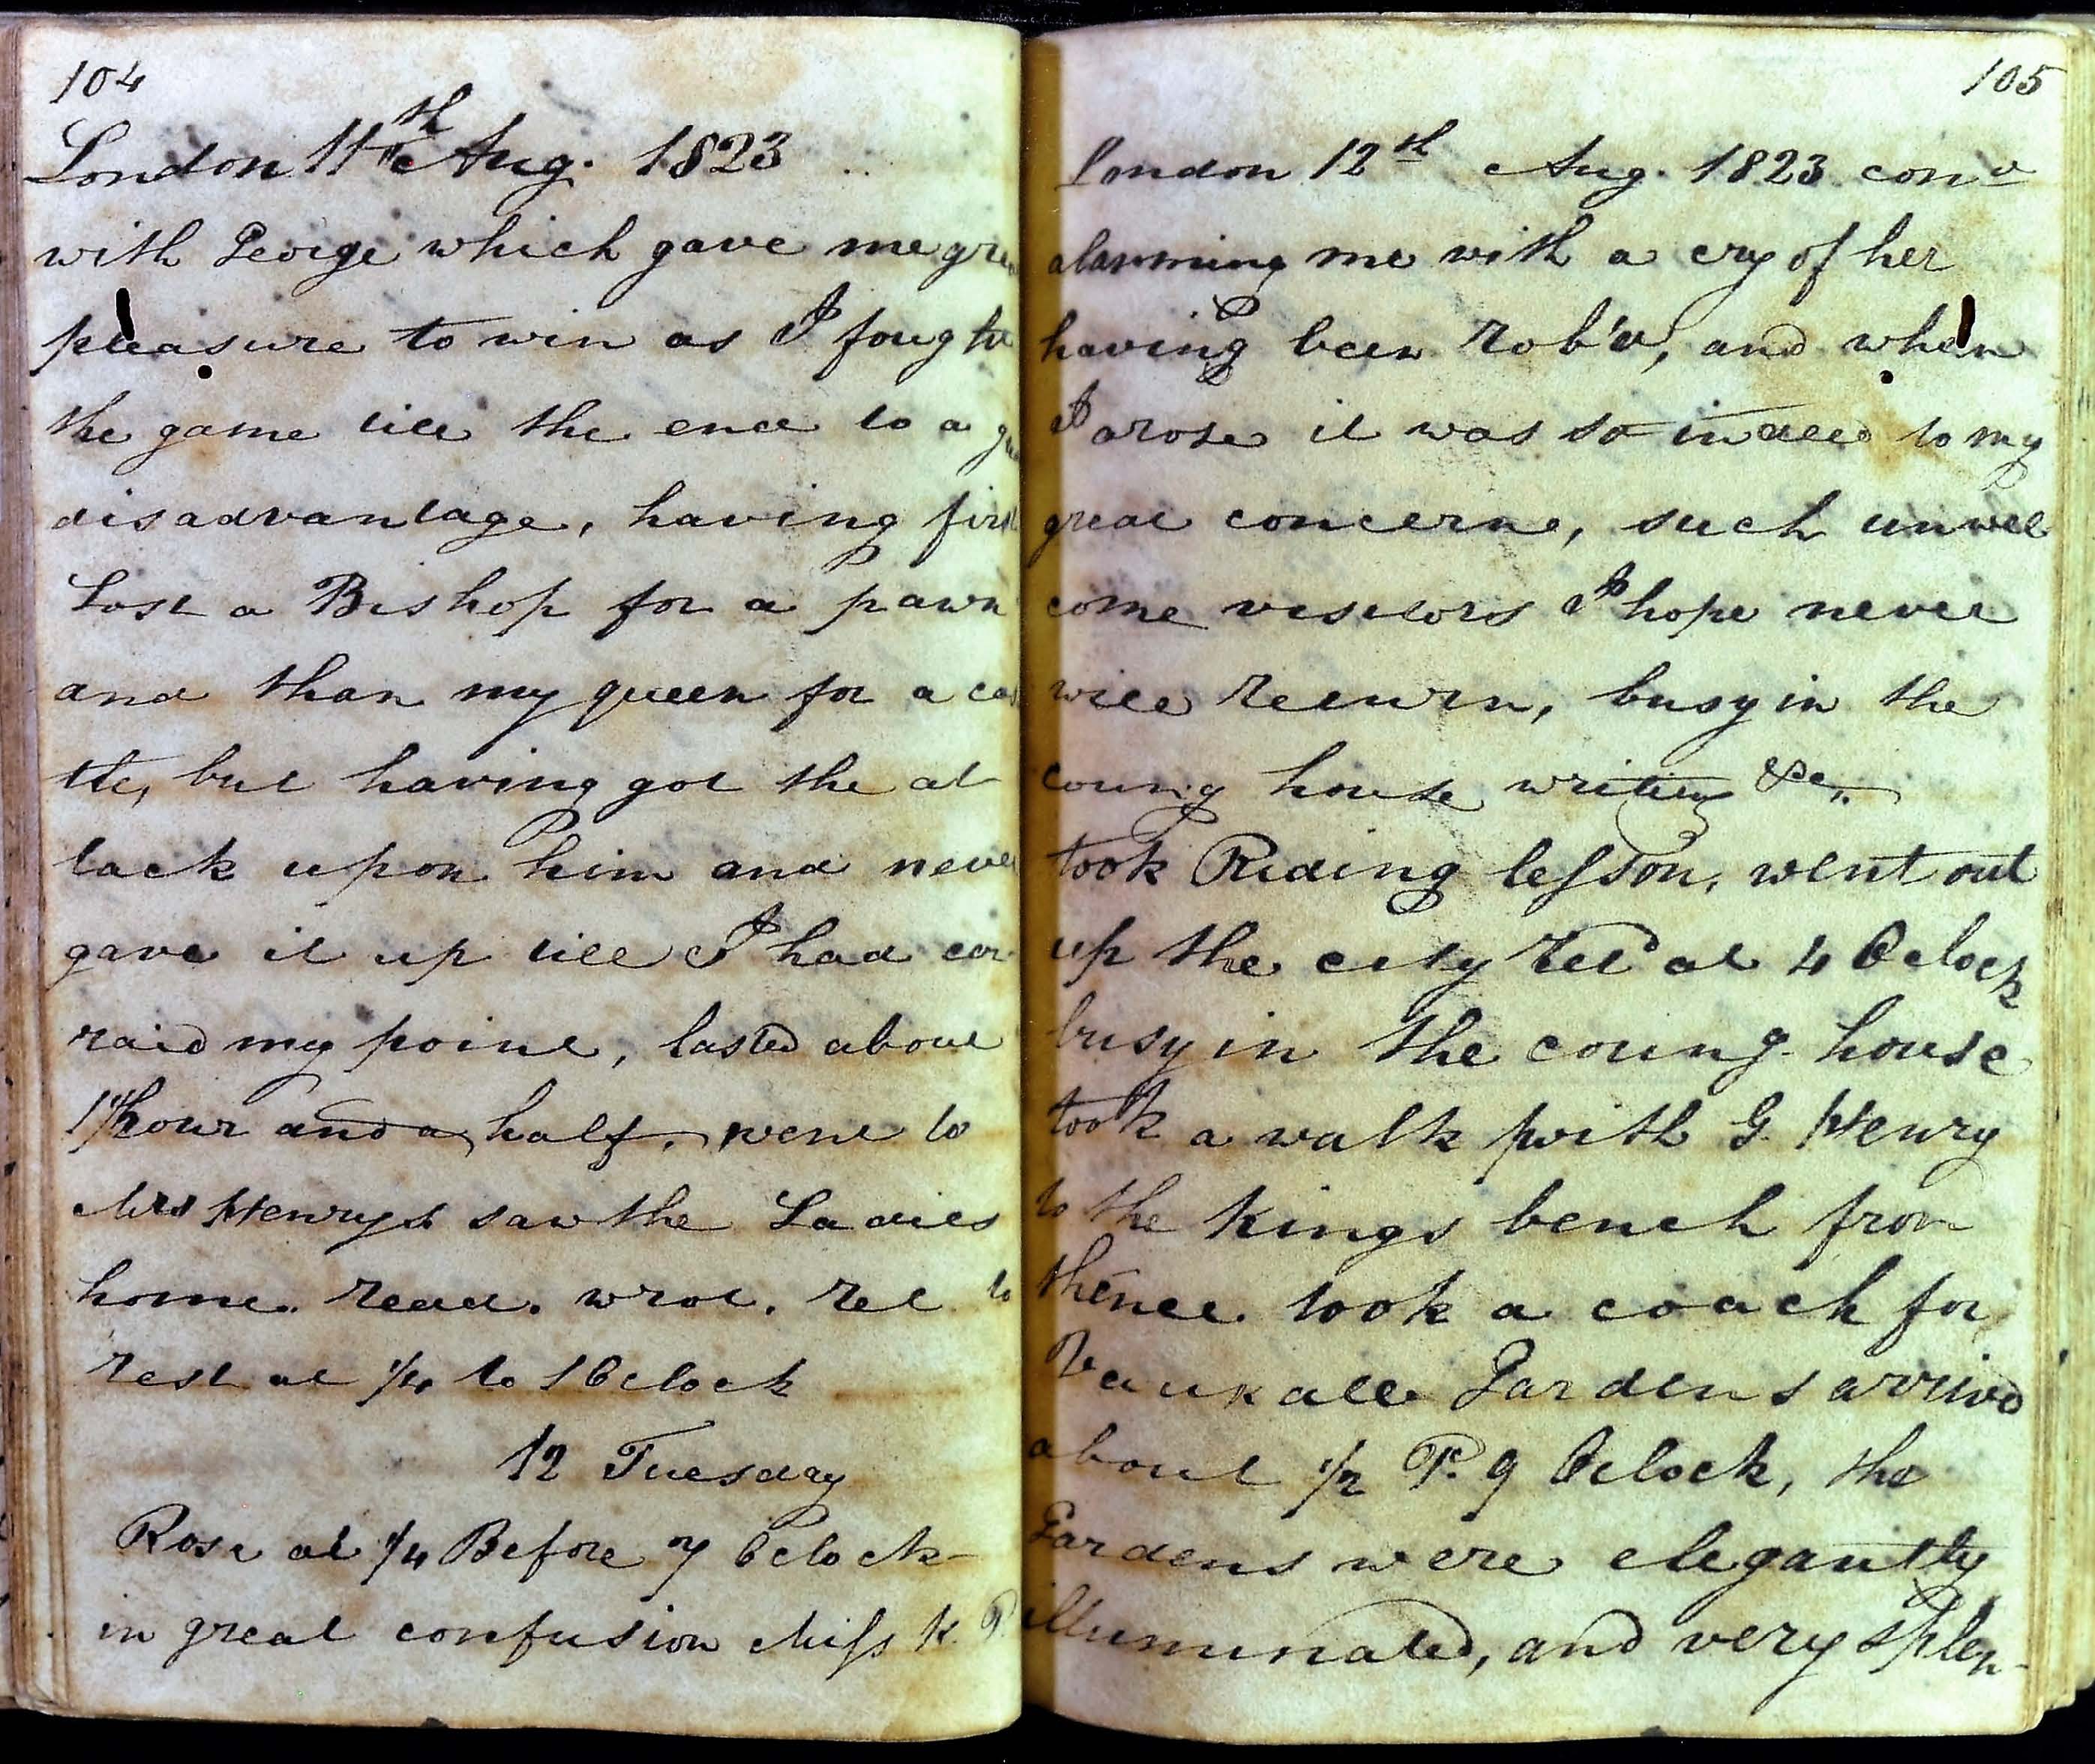 104
London 11th Aug. 1823
with George which gave me gre
pleasure to win as I fought
the game till the end to a
disadvantage, having first
Lost a Bishop for a pawn
and than my queen for a cas
tle, but having got the at
tack upon him and never
gave it up till I had car
raid my point, lasted about
1 hour and a half. went to
Mrs Henrys saw the Ladies
home. read. wrot. ret to
rest at 1/4 to 1 Oclock
12 Tuesday
Rose at 1/4 Before 7 Oclock
in great confusion Miss K. P.
105
London 12th Aug. 1823 cond
alarming me with a cry of her
having been rob'd, and when
I arose it was so indeed to my
great concern, such unwel
come visitors I hope never
will return, busy in the
coung house writing &c.
took Riding lesson, went out
up the city retd at 4 Oclock
busy in the coung. house
took a walk with G. Henry
to the Kings bench from
thence took a coach for
Vauxall Gardens arrived
about 1/2 P. 9 Oclock, the
Gardens were elegantly
illuminated, and very splen-